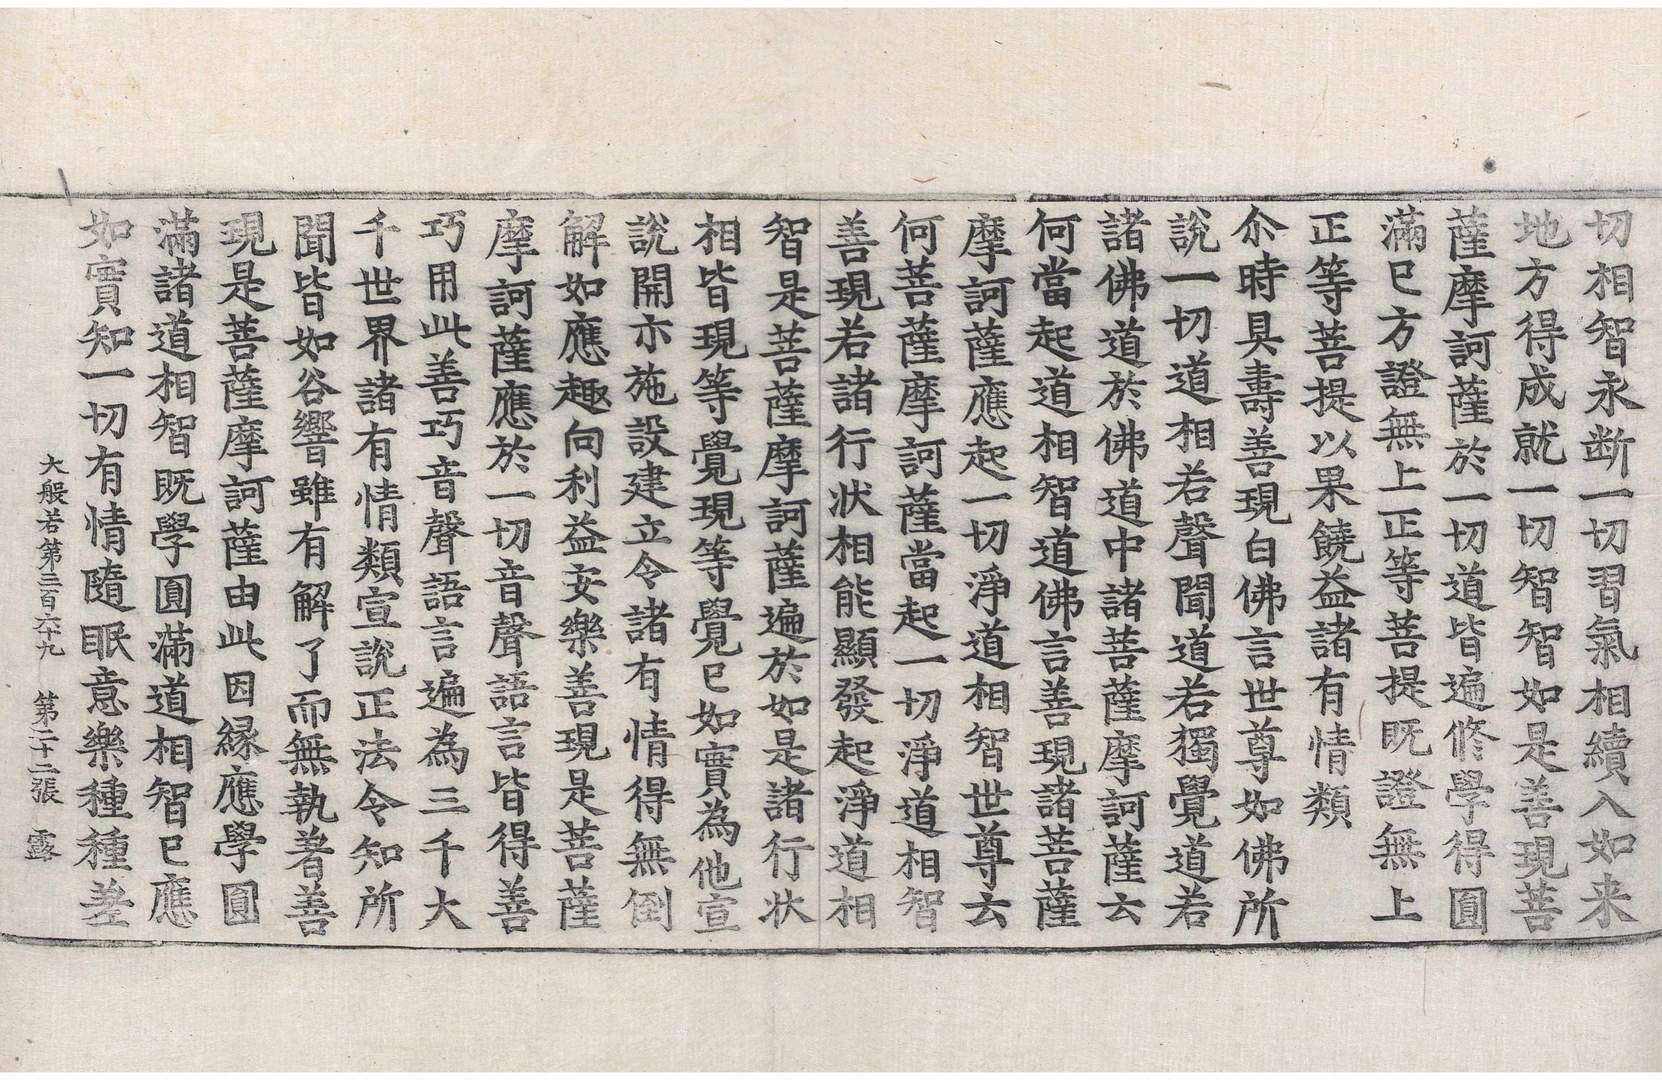 切相智永断一切習氣相續入如来
地方得成就一切智智如是善現菩
薩摩訶薩於一切道皆遍修學得圓
滿已方證無上正等菩提既證無上
正等菩提以果饒益諸有情類
尒時具壽善現白佛言世尊如佛所
說一切道相若聲聞道若獨覺道若
諸佛道於佛道中諸菩薩摩訶薩云
何當起道相智道佛言善現諸菩薩
摩訶薩應起一切淨道相智世尊云
何菩薩摩訶薩當起一切淨道相智
善現若諸行状相能顯發起淨道相
智是菩薩摩訶薩遍於如是諸行状
相皆現等覺現等覺已如實為他宣
說開亦施設建立令諸有情得無倒
解如應趣向利益安樂善現是菩薩
摩訶薩應於一切音聲語言皆得善
巧用此善巧音聲語言遍為三千大
千世界諸有情類宣說正法令知所
聞皆如谷響雖有解了而無執著善
現是菩薩摩訶薩由此因縁應學圓
滿諸道相智既學圓滿道相智已應
如實知一切有情隨眠意樂種種差
大般若第三百六十九 第二十二張 露